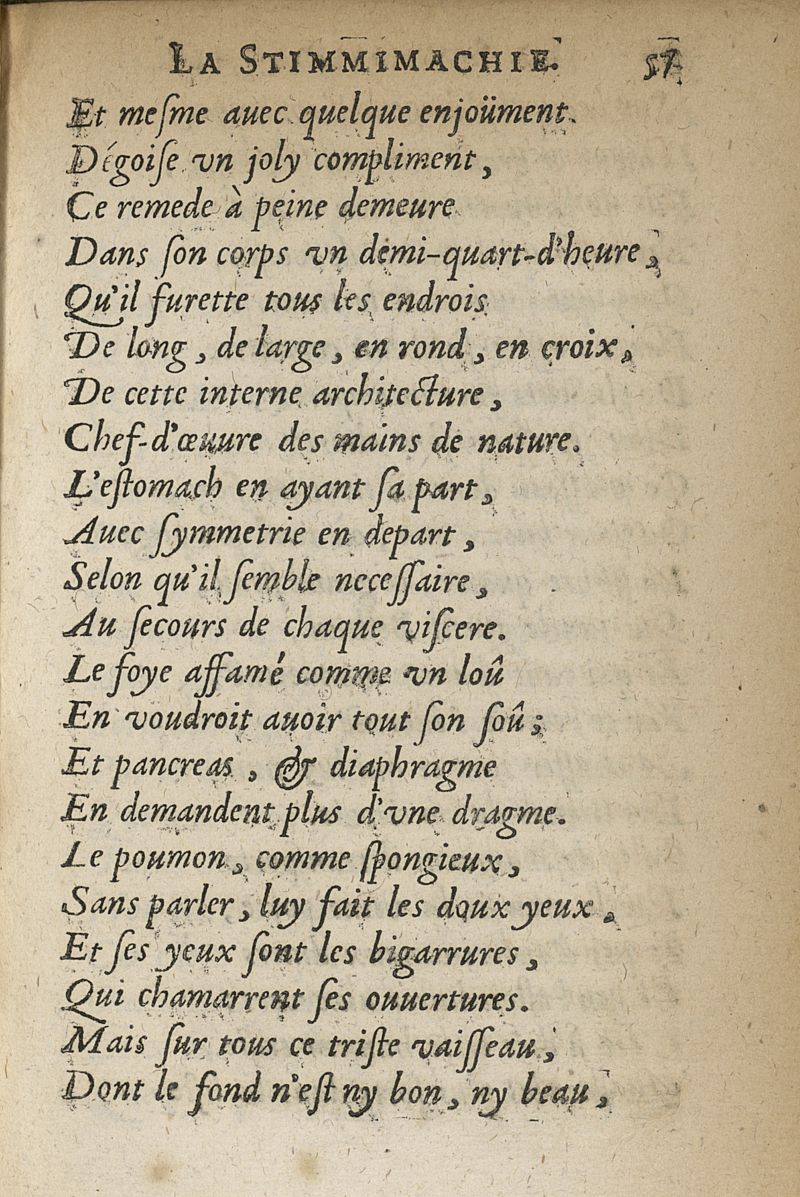 LA STIMMIMACHIE. 57
Et meſme auec quelque enjoüment.
Dégoiſe vn joly compliment,
Ce remede à peine demeure
Dans ſon corps vn demi-quart-d'heure,
Qu'il furette tous les endrois
De long, de large, en rond, en croix,
De cette interne architecture,
Chef-d'œuure des mains de nature.
L'eſtomach en ayant ſa part,
Auec ſymmetrie en depart,
Selon qu'il ſemble neceſſaire,
Au ſecours de chaque viſcere.
Le foye affamé comme vn loû
En voudroit auoir tout ſon ſoû;
Et pancreas, & diaphragme
En demandent plus d'vne dragme.
Le poumon, comme ſpongieux,
Sans parler, luy fait les doux yeux,
Et ſes yeux ſont les bigarrures,
Qui chamarrent ſes ouuertures.
Mais ſur tous ce triſte vaiſſeau,
Dont le fond n'eſt ny bon, ny beau,